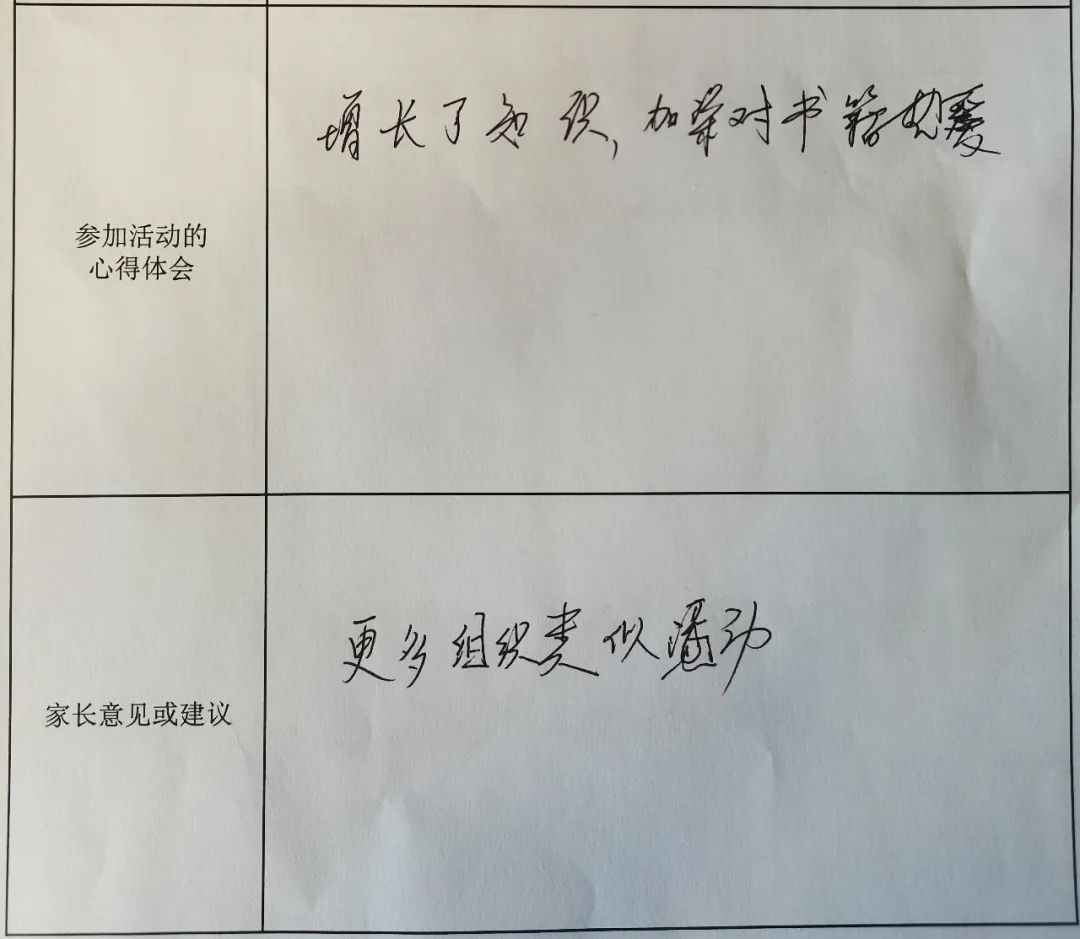 增长了知识,加深对书籍热爱
参加活动的
心得体会
更多组织类似活动
家长意见或建议